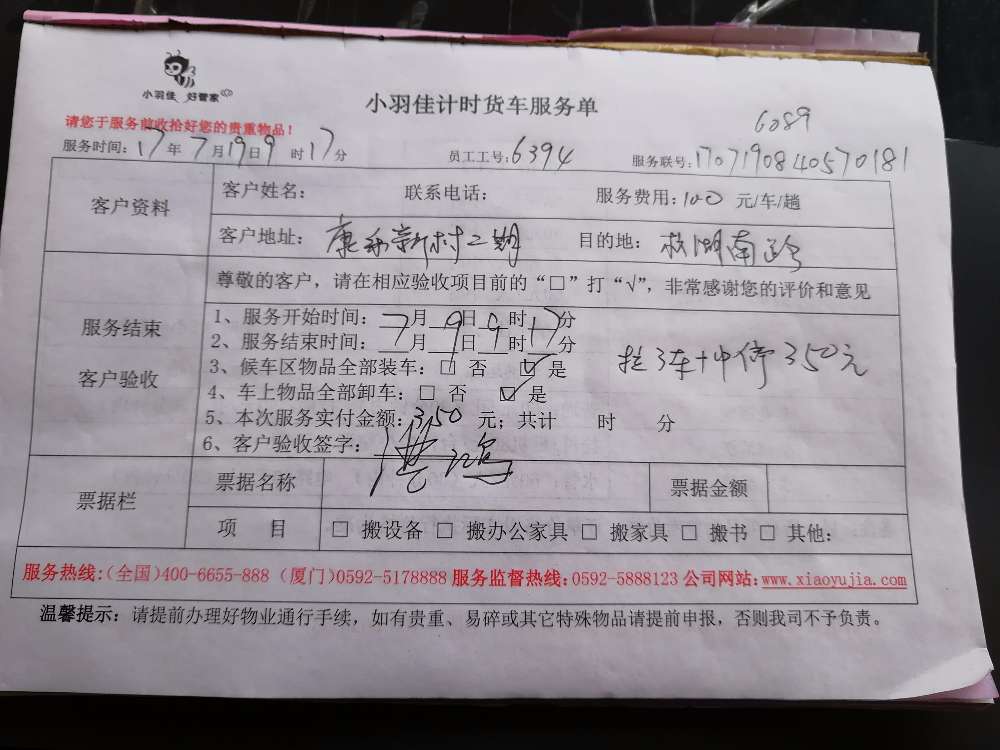 小羽佳 好管家
小羽佳计时货车服务单
6089
请您于服务前收拾好您的贵重物品！
服务时间：17年7月19日9时17分 员工工号：6394 服务联号：1707190840570181
客户资料
客户姓名： 联系电话： 服务费用：100 元/车/趟
客户地址： 新村二期 目的地： 湖南
尊敬的客户，请在相应验收项目前的“□”打“√”，非常感谢您的评价和意见
服务结束
客户验收
1、服务开始时间：7月9日9时17分
2、服务结束时间：__月__日__时__分
3、候车区物品全部装车：□ 否 ☑ 是
拉3车+中停350元
4、车上物品全部卸车：□ 否 ☑ 是
5、本次服务实付金额：350 元；共计 时 分
6、客户验收签字：
票据栏
票据名称 票据金额
项 目 □ 搬设备 □ 搬办公家具 □ 搬家具 □ 搬书 □ 其他：
服务热线：（全国）400-6655-888 （厦门）0592-5178888 服务监督热线：0592-5888123 公司网站：www.xiaoyujia.com
温馨提示：请提前办理好物业通行手续，如有贵重、易碎或其它特殊物品请提前申报，否则我司不予负责。